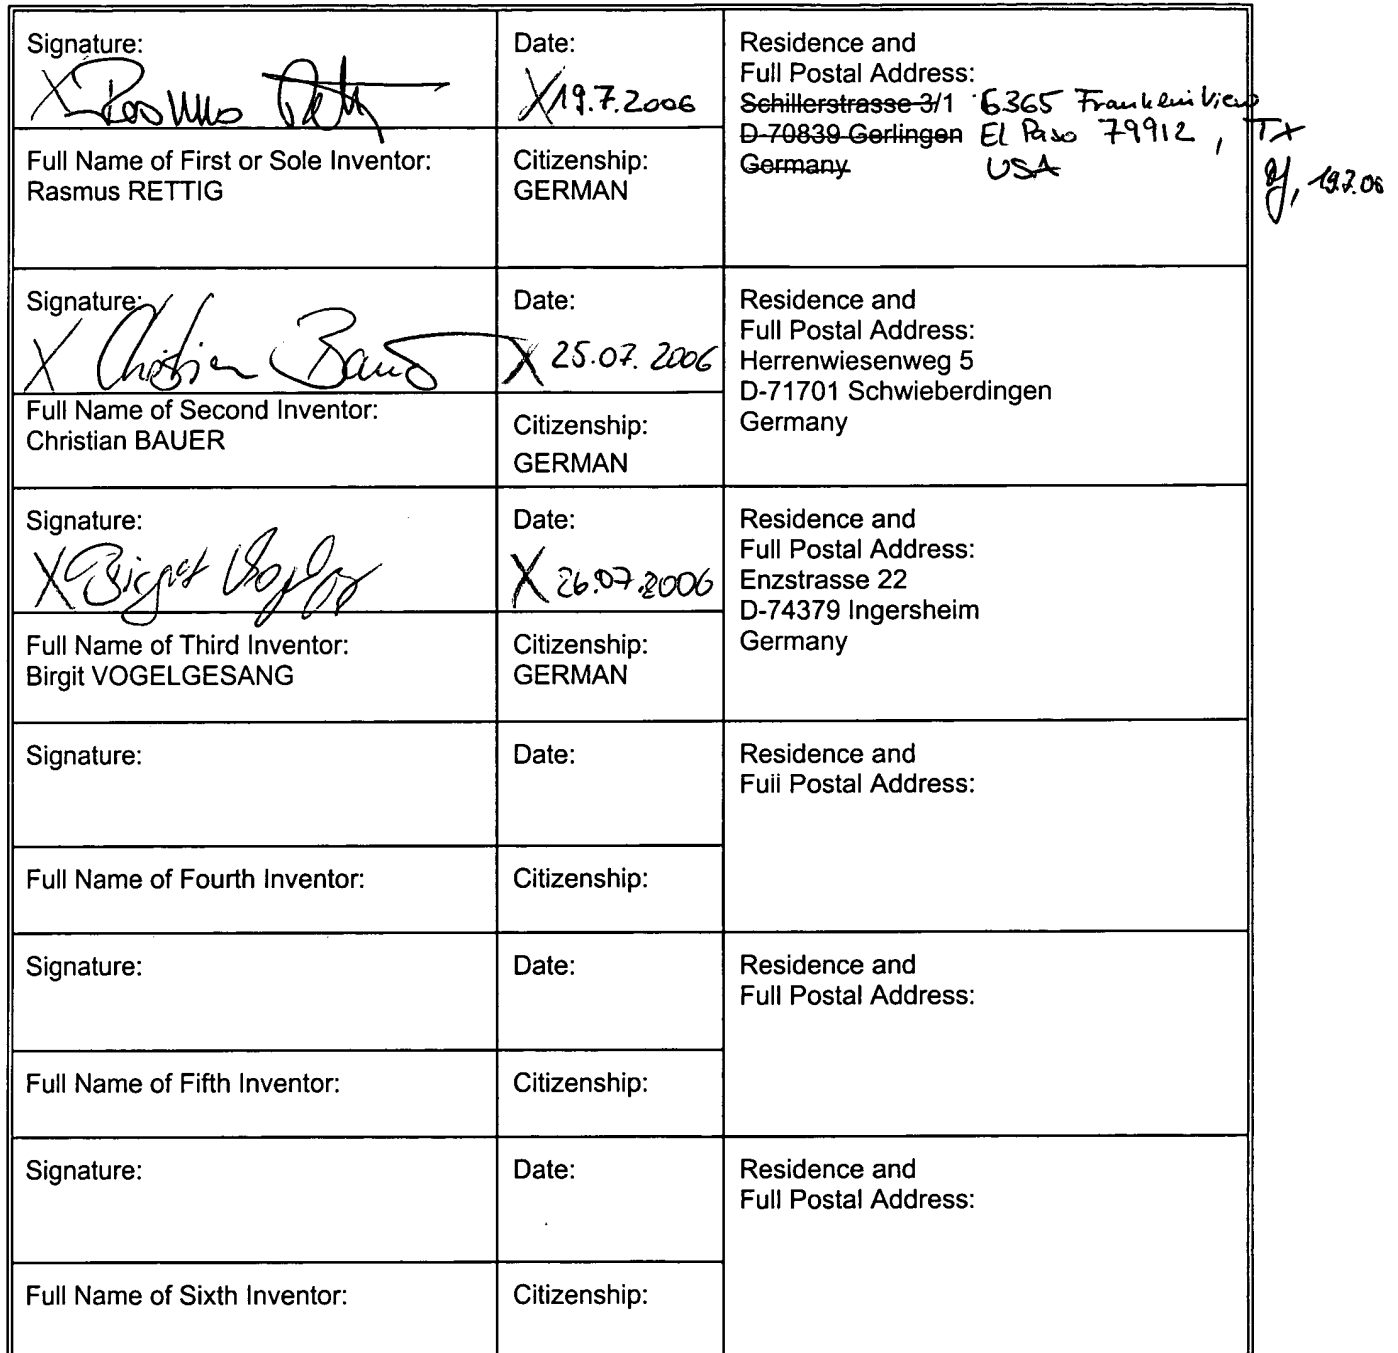 Signature:
X Rasmus Rettig
Date:
X 19.7.2006
Residence and
Full Postal Address:
Schillerstrasse 3/1 6365 Franklin View
D-70839 Gerlingen El Paso 79912, TX
Germany USA
, 19.7.06
Full Name of First or Sole Inventor:
Rasmus RETTIG
Citizenship:
GERMAN
Signature:
X Christian Bauer
Date:
X 25.07.2006
Residence and
Full Postal Address:
Herrenwiesenweg 5
D-71701 Schwieberdingen
Germany
Full Name of Second Inventor:
Christian BAUER
Citizenship:
GERMAN
Signature:
X Birgit Vogelgesang
Date:
X 26.07.2006
Residence and
Full Postal Address:
Enzstrasse 22
D-74379 Ingersheim
Germany
Full Name of Third Inventor:
Birgit VOGELGESANG
Citizenship:
GERMAN
Signature:
Date:
Residence and
Full Postal Address:
Full Name of Fourth Inventor:
Citizenship:
Signature:
Date:
Residence and
Full Postal Address:
Full Name of Fifth Inventor:
Citizenship:
Signature:
Date:
Residence and
Full Postal Address:
Full Name of Sixth Inventor:
Citizenship: